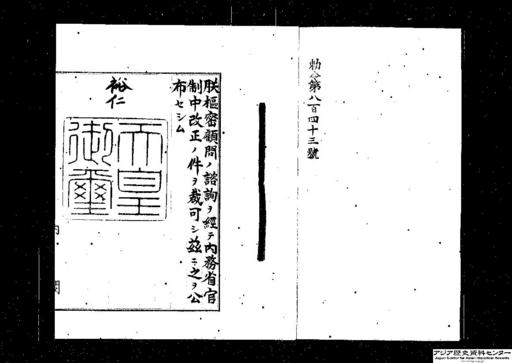 勅令第八百四十三號
朕樞密顧問ノ諮詢ヲ經テ內務省官
制中改正ノ件ヲ裁可シ茲ニ之ヲ公
布セシム
裕仁
天皇
御璽
内閣
アジア歴史資料センター
Japan Center for Asian Historical Records